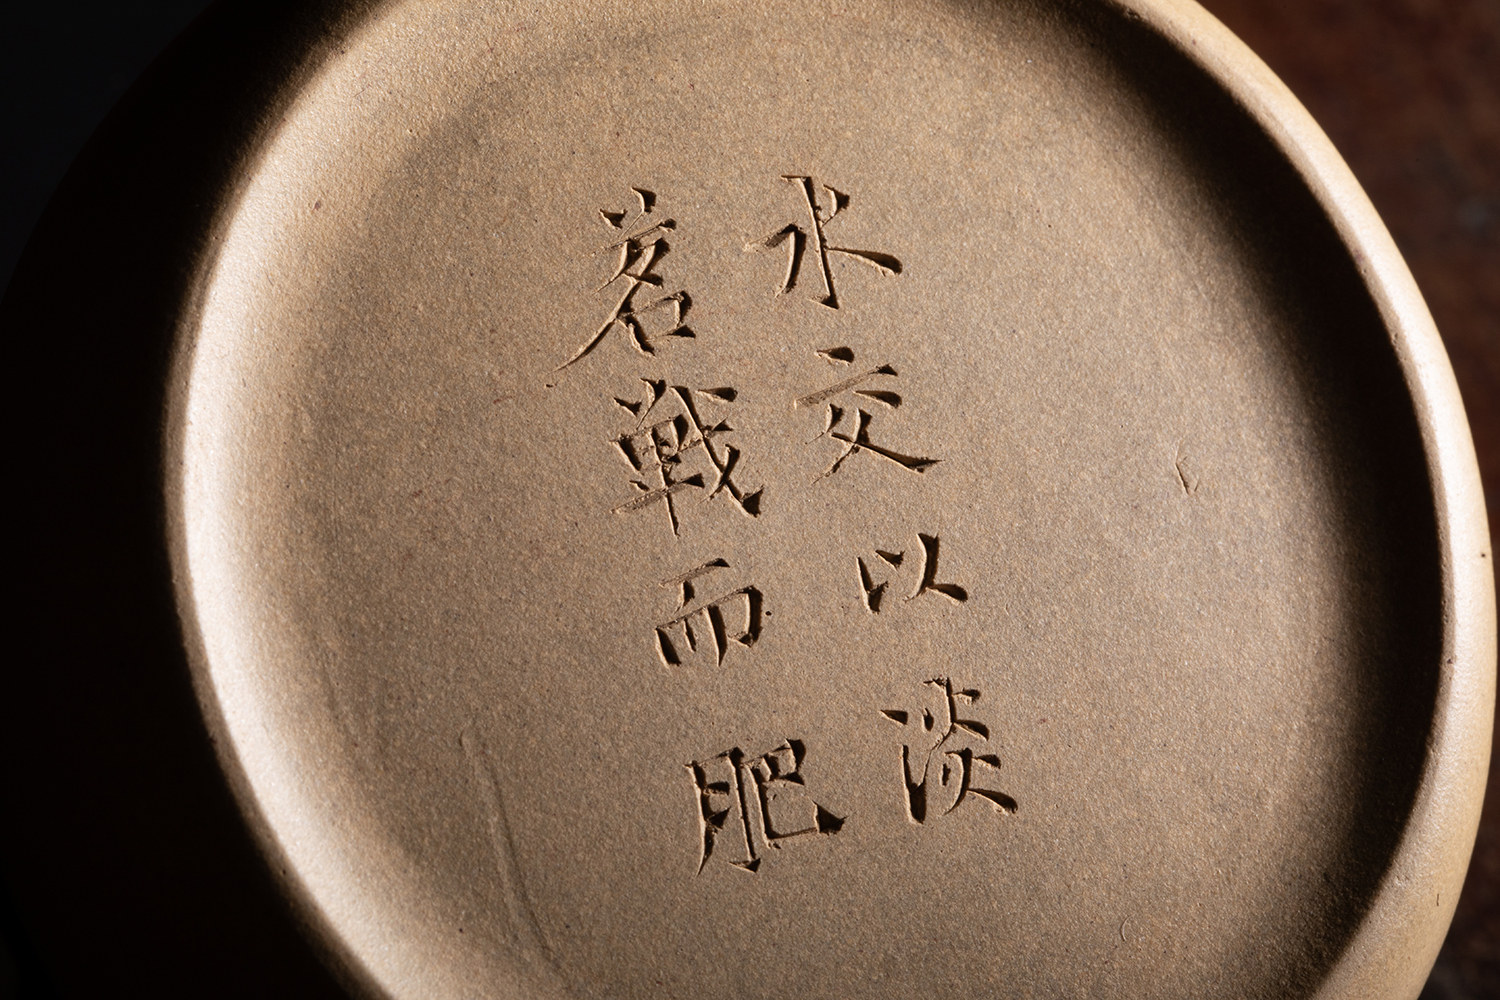 水交以淡
茗戰而肥